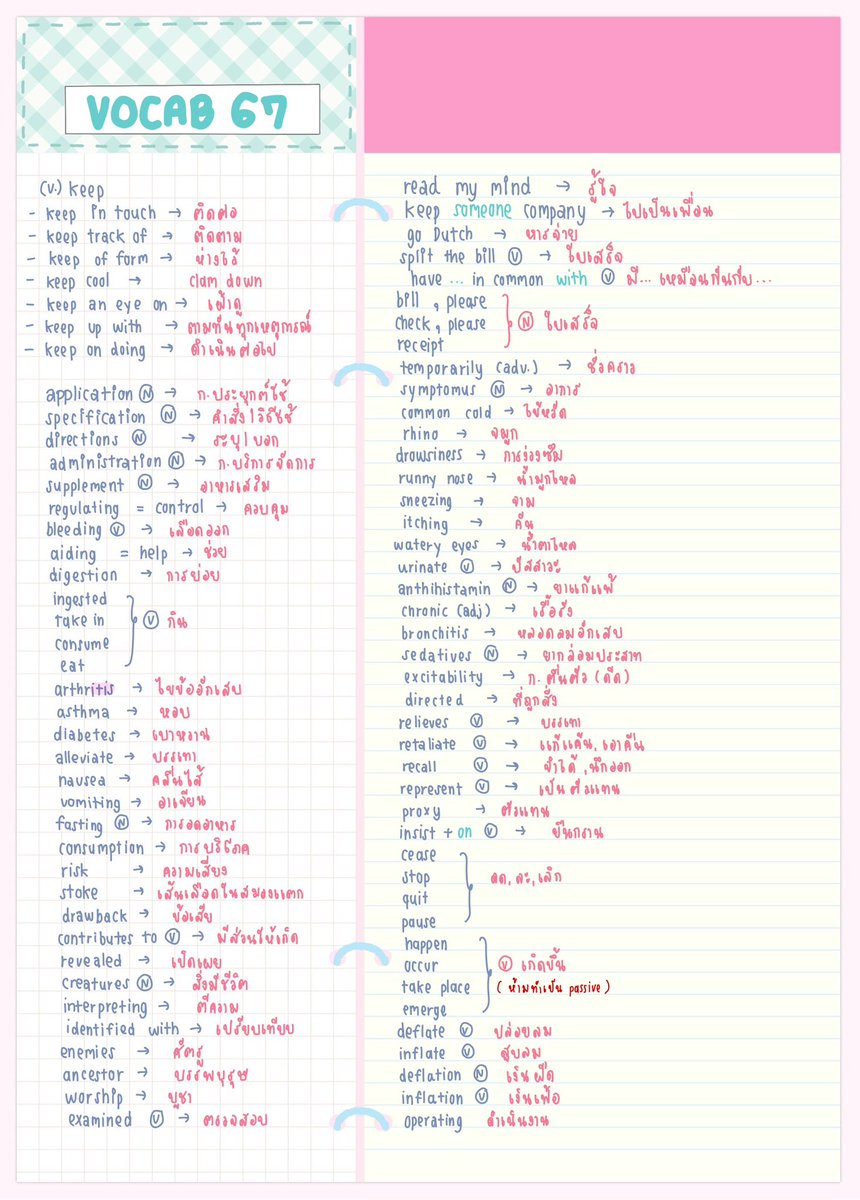 VOCAB 67
(v.) keep
- keep in touch → ติดต่อ
- keep track of → ติดตาม
- keep of form → ห่างไว้
- keep cool → clam down
- keep an eye on → เฝ้าดู
- keep up with → ตามทันทุกเหตุการณ์
- keep on doing → ดำเนินต่อไป
application Ⓝ → ก.ประยุกต์ใช้
specification Ⓝ → คำสั่ง/วิธีใช้
directions Ⓝ → ระบุ/บอก
administration Ⓝ → ก.บริการจัดการ
supplement Ⓝ → อาหารเสริม
regulating = control → ควบคุม
bleeding Ⓥ → เลือดออก
aiding = help → ช่วย
digestion → การย่อย
ingested
take in
consume
eat
Ⓥ กิน
arthritis → ไขข้ออักเสบ
asthma → หอบ
diabetes → เบาหวาน
alleviate → บรรเทา
nausea → คลื่นไส้
vomiting → อาเจียน
fasting Ⓝ → การอดอาหาร
consumption → การบริโภค
risk → ความเสี่ยง
stoke → เส้นเลือดในสมองแตก
drawback → ข้อเสีย
contributes to Ⓥ → มีส่วนให้เกิด
revealed → เปิดเผย
creatures Ⓝ → สิ่งมีชีวิต
interpreting → ตีความ
identified with → เปรียบเทียบ
enemies → ศัตรู
ancestor → บรรพบุรุษ
worship → บูชา
examined Ⓥ → ตรวจสอบ
read my mind → รู้ใจ
keep someone company → ไปเป็นเพื่อน
go Dutch → หารจ่าย
split the bill Ⓥ → ใบเสร็จ
have ... in common with Ⓥ มี... เหมือนกันกับ...
bill , please
check , please
receipt
Ⓝ ใบเสร็จ
temporarily (adv.) → ชั่วคราว
symptomus Ⓝ → อาการ
common cold → ไข้หวัด
rhino → จมูก
drowsiness → การง่วงซึม
runny nose → น้ำมูกไหล
sneezing → จาม
itching → คัน
watery eyes → น้ำตาไหล
urinate Ⓥ → ปัสสาวะ
anthihistamin Ⓝ → ยาแก้แพ้
chronic (adj) → เรื้อรัง
bronchitis → หลอดลมอักเสบ
sedatives Ⓝ → ยากล่อมประสาท
excitability → ก. ตื่นตัว (ดีด)
directed → ที่ถูกสั่ง
relieves Ⓥ → บรรเทา
retaliate Ⓥ → แก้แค้น, เอาคืน
recall Ⓥ → จำได้ , นึกออก
represent Ⓥ → เป็นตัวแทน
proxy → ตัวแทน
insist + on Ⓥ → ยืนกราน
cease
stop
quit
pause
ลด, ละ, เลิก
happen
occur
take place
emerge
Ⓥ เกิดขึ้น
( ห้ามทำเป็น passive )
deflate Ⓥ ปล่อยลม
inflate Ⓥ สูบลม
deflation Ⓝ เงินฝืด
inflation Ⓥ เงินเฟ้อ
operating ดำเนินงาน